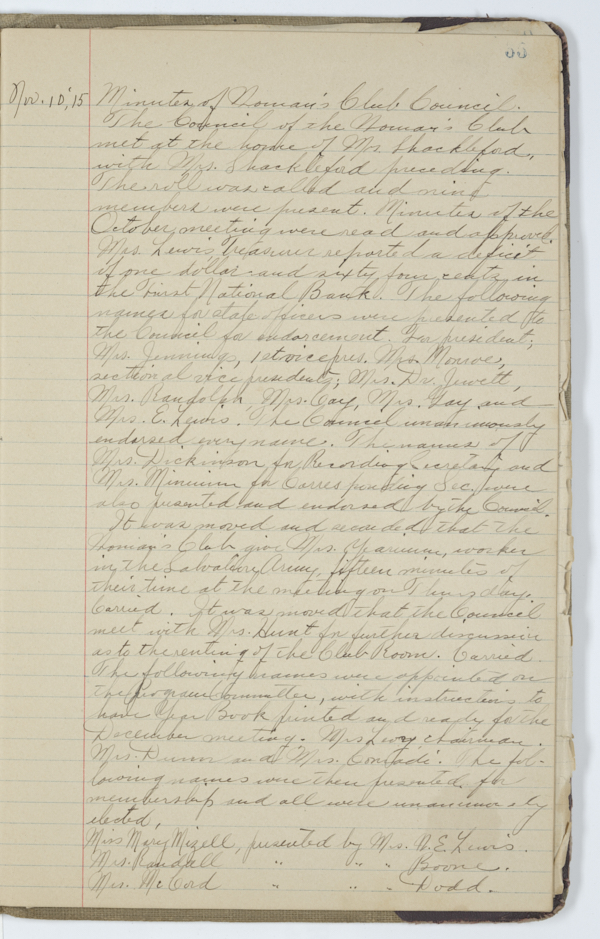 55
Nov. 10, '15 Minutes of Woman's Club Council.
The Council of the Woman's Club
met at the home of Mrs. Shackleford,
with Mrs. Shackleford preceding.
The roll was called and nine
members were present. Minutes of the
October meeting were read and approved.
Mrs. Lewis Treasurer reported a deficit
of one dollar and sixty four cents in
the First National Bank. The following
names for state officers were presented to
the Council for endorsement. For president;
Mrs. Jennings, 1st vice pres. Mrs. Monroe,
sectional vice presidents; Mrs. Dr. Jewett,
Mrs. Randolph, Mrs. Cay, Mrs. Fay and
Mrs. E. Lewis. The Council unanimously
endorsed every name. The names of
Mrs. Dickinson for Recording Secretary and
Mrs. for Corresponding Sec. were
also presented and endorsed by the Council.
It was moved and seconded that the
Woman's Club give Mrs. worker
in the Salvation Army, fifteen minutes of
their time at the meeting on Thursday.
Carried. It was moved that the Council
meet with Mrs. Hunt for further discussion
as to the renting of the Club Room. Carried.
The following names were appointed on
the Program Committee, with instructions to
have Year Book printed and ready for the
December meeting. Mrs Levy chairman.
Mrs. Dunn and Mrs. Conradi. The fol-
lowing names were then presented for
membership and all were unanimously
elected,
Miss Mary Mizell, presented by Mrs. W. E. Lewis.
Mrs. Randall " " " Boone.
Mrs. McCord " " " Dodd.